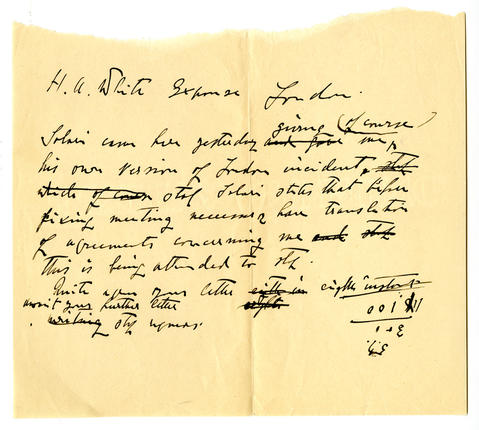 H. A. White Expanse London.
Solari came here yesterday and gave giving (of course) me,
his own version of London incident, stop
which of course stop Solari states that before
fixing meeting necessary have translation
of agreements concerning me and stop
this is being attended to stop.
Quite agree your letter eighth instant
await your further letter
writing stop regards.